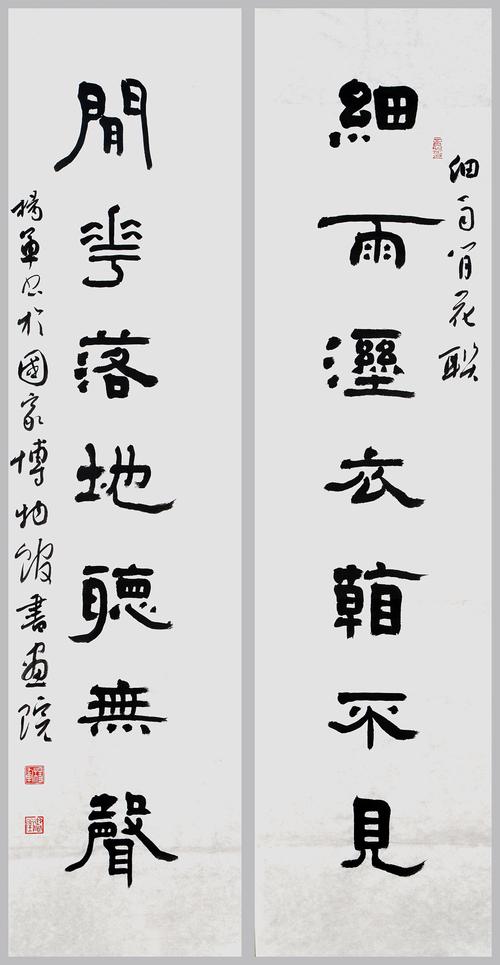 細雨閒花聯
細雨溼衣看不見
閒花落地聽無聲
楊軍於國家博物館書畫院